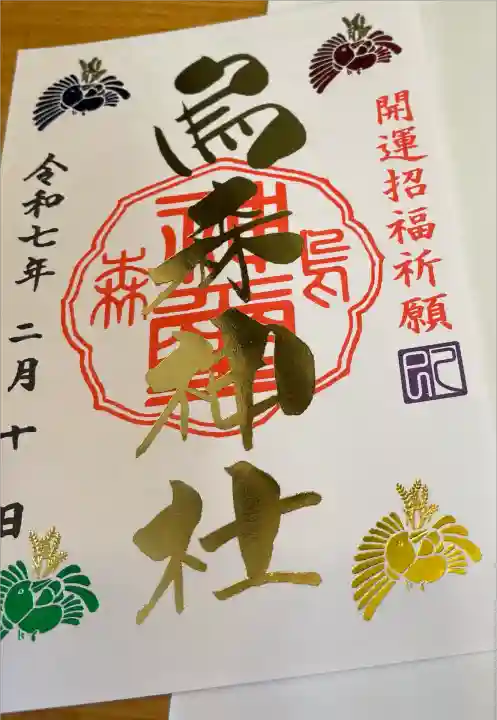 開運招福祈願
烏森神社
烏
森
令和七年 二月 十 日